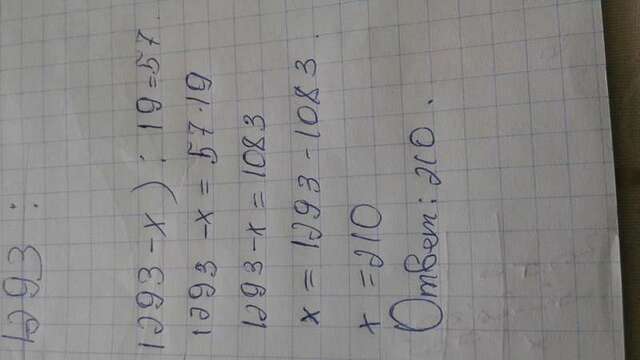 1293 :
1293 - x) : 19 = 57
1293 - x = 57 · 19
1293 - x = 1083
x = 1293 - 1083.
x = 210
Ответ: 210.